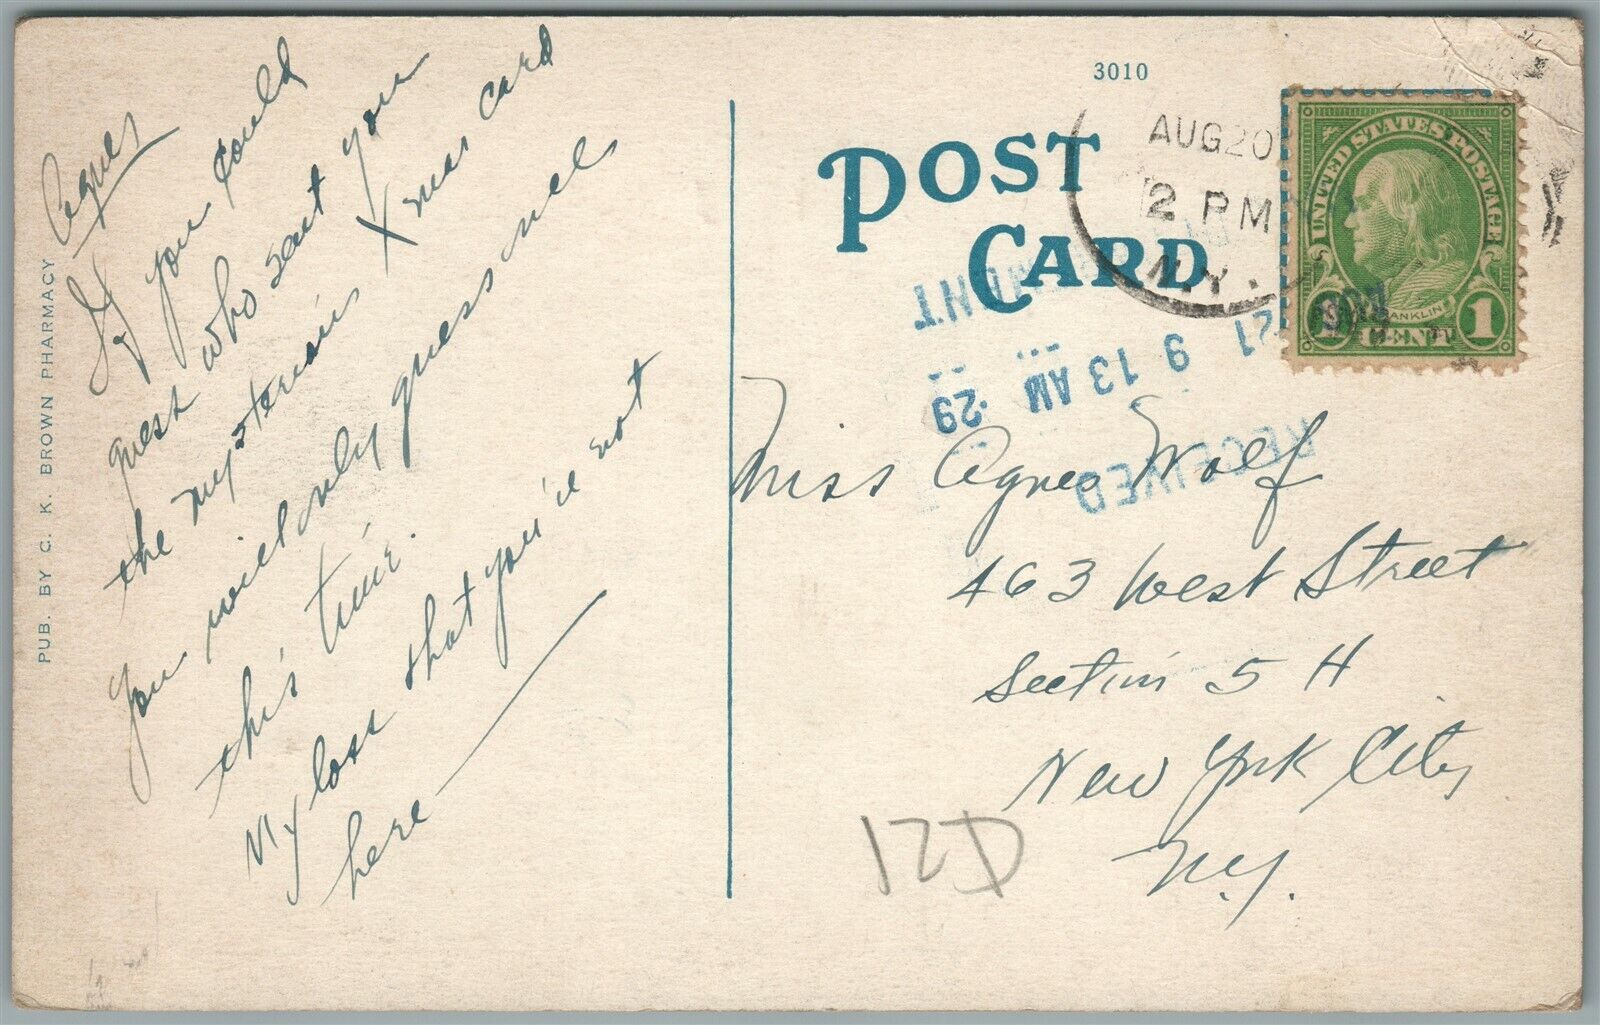 Agnes
If you could
guess who sent you
the mysterious Xmas card
You will only guess well
this time.
My loss that you're not
here
PUB. BY C. K. BROWN PHARMACY
3010
POST
CARD
AUG 20
2 PM
N.Y.
UNITED STATES POSTAGE
FRANKLIN
1 CENT 1
AUG
21 9 13 AM '29
RECEIVED
Miss Agnes Wolf
463 West Street
Section 5 H
New York City
N.Y.
12D